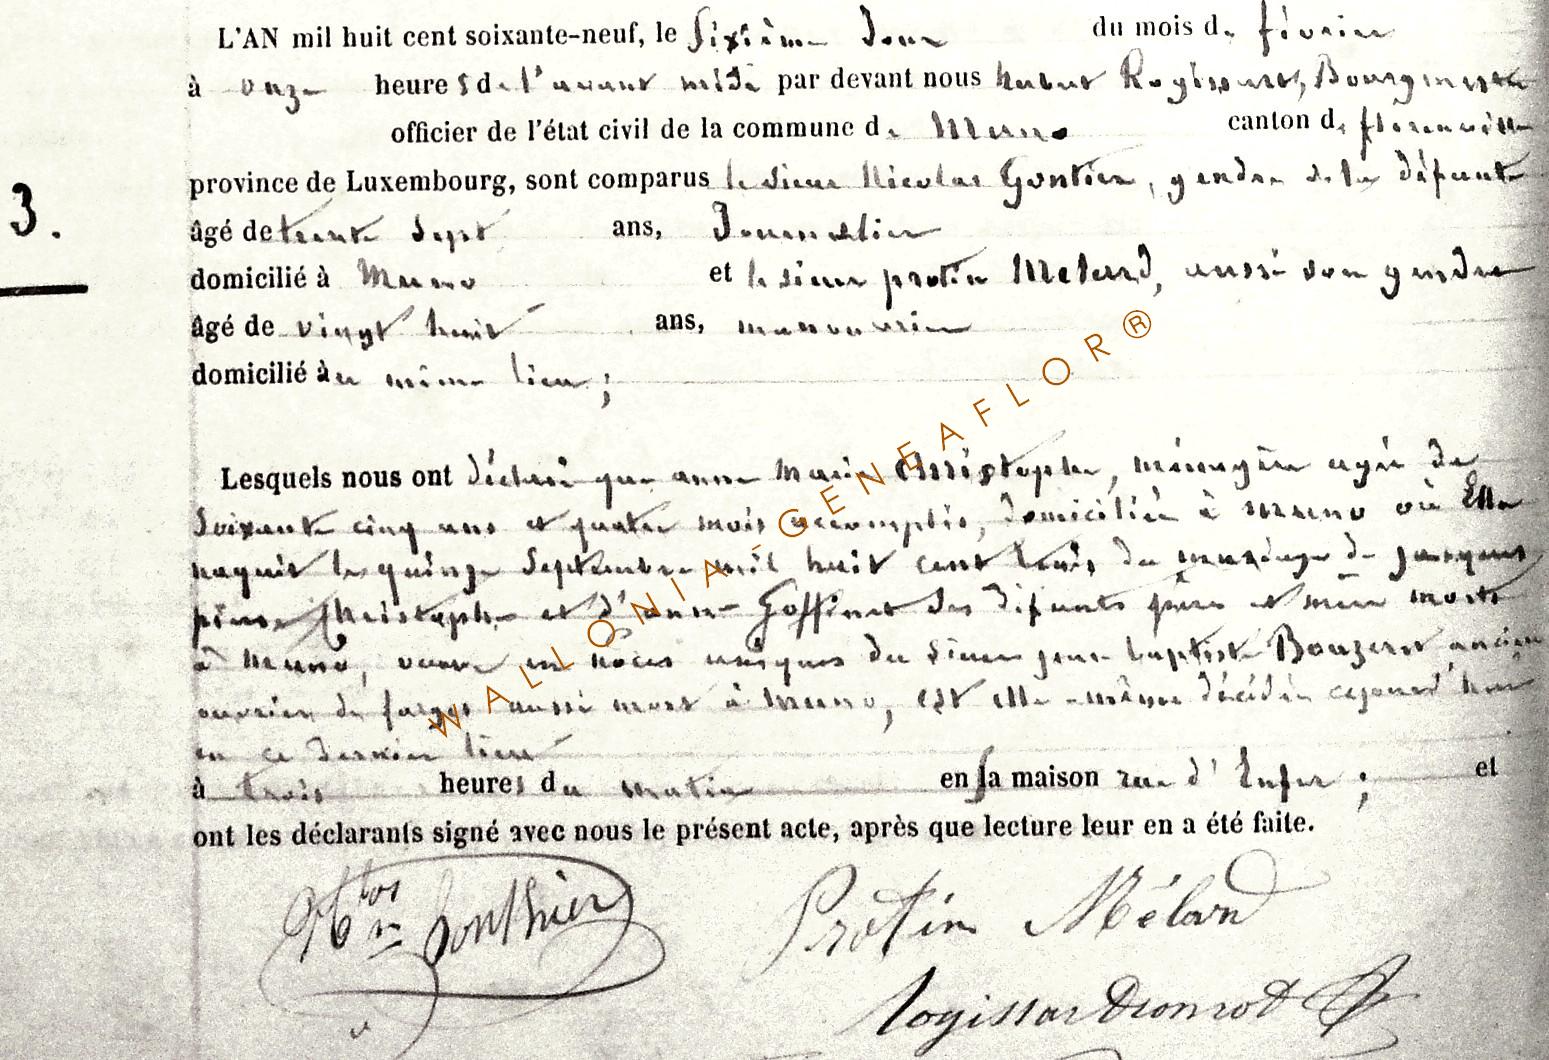 L'AN mil huit cent soixante-neuf, le Sixième Jour du mois de février
à onze heures de l'avant midi par devant nous hubert Rogissart, Bourgmestre
officier de l'état civil de la commune de Muno canton de florenville
province de Luxembourg, sont comparus le sieur Nicolas Gontier, gendre de la défunte
3. âgé de trente Sept ans, Journalier
domicilié à Muno et le sieur protin Melard, aussi son gendre
âgé de vingt huit ans, manouvrier
domicilié au même lieu ;
Lesquels nous ont déclaré que anne Marie Christophe, ménagère agée de
Soixante cinq ans et quatre mois accomplis, domiciliée à muno où Elle
naquit le quinze Septembre mil huit cent trois du mariage de jacques
pierre Christophe et d'anne Goffinet Ses défunts père et mère morts
à Muno, veuve en noces uniques du sieur jean baptiste Bouzeret ancien
ouvrier de forges aussi mort à Muno, est elle-même décédée cejourd'hui
en ce dernier lieu
à trois heures du matin en sa maison rue d'Enfer ; et
ont les déclarants signé avec nous le présent acte, après que lecture leur en a été faite.
Gonthier Protin Mélard
Rogissart
WALLONIA-GENEAFLOR®